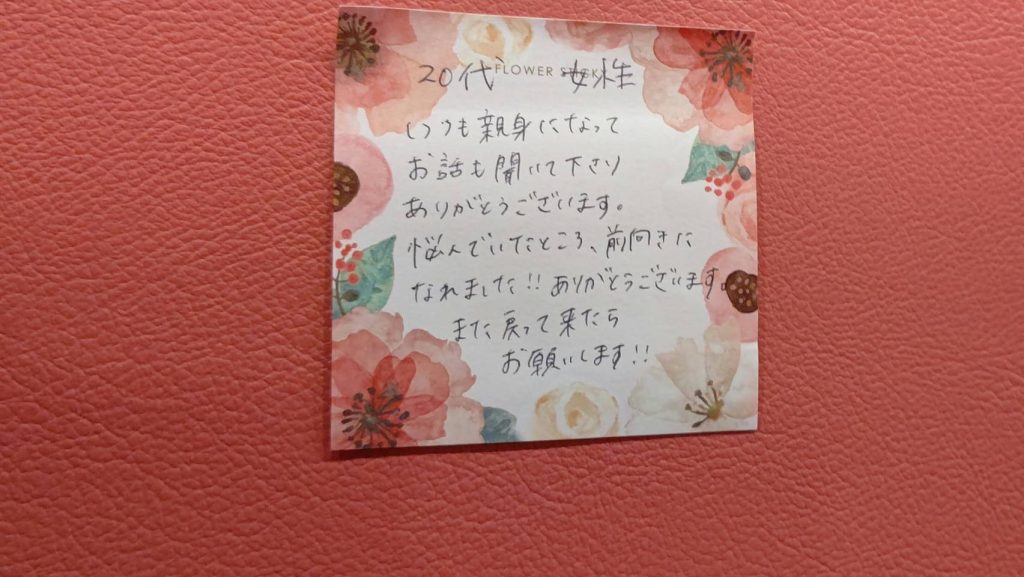 FLOWER STICKY
20代 女性
いつも親身になって
お話も聞いて下さり
ありがとうございます。
悩んでいたところ、前向きに
なれました!!ありがとうございます。
また戻って来たら
お願いします!!